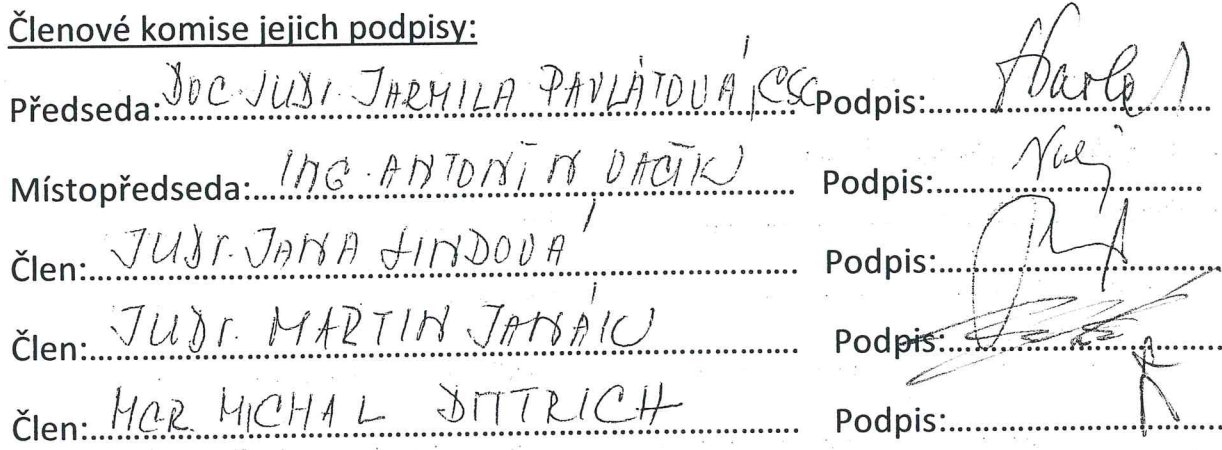 Členové komise jejich podpisy:
Předseda: DOC. JUDr. JARMILA PAVLÁTOVÁ, CSC Podpis:
Místopředseda: ING. ANTONÍN VACÍK Podpis:
Člen: JUDr. JANA LINDOVÁ Podpis:
Člen: JUDr. MARTIN JANÁK Podpis:
Člen: MGR. MICHAL DITTRICH Podpis: